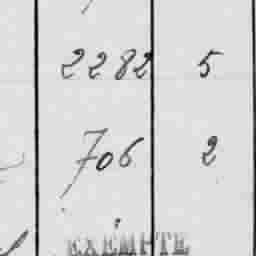 2282 5
706 2
EXEMPTE